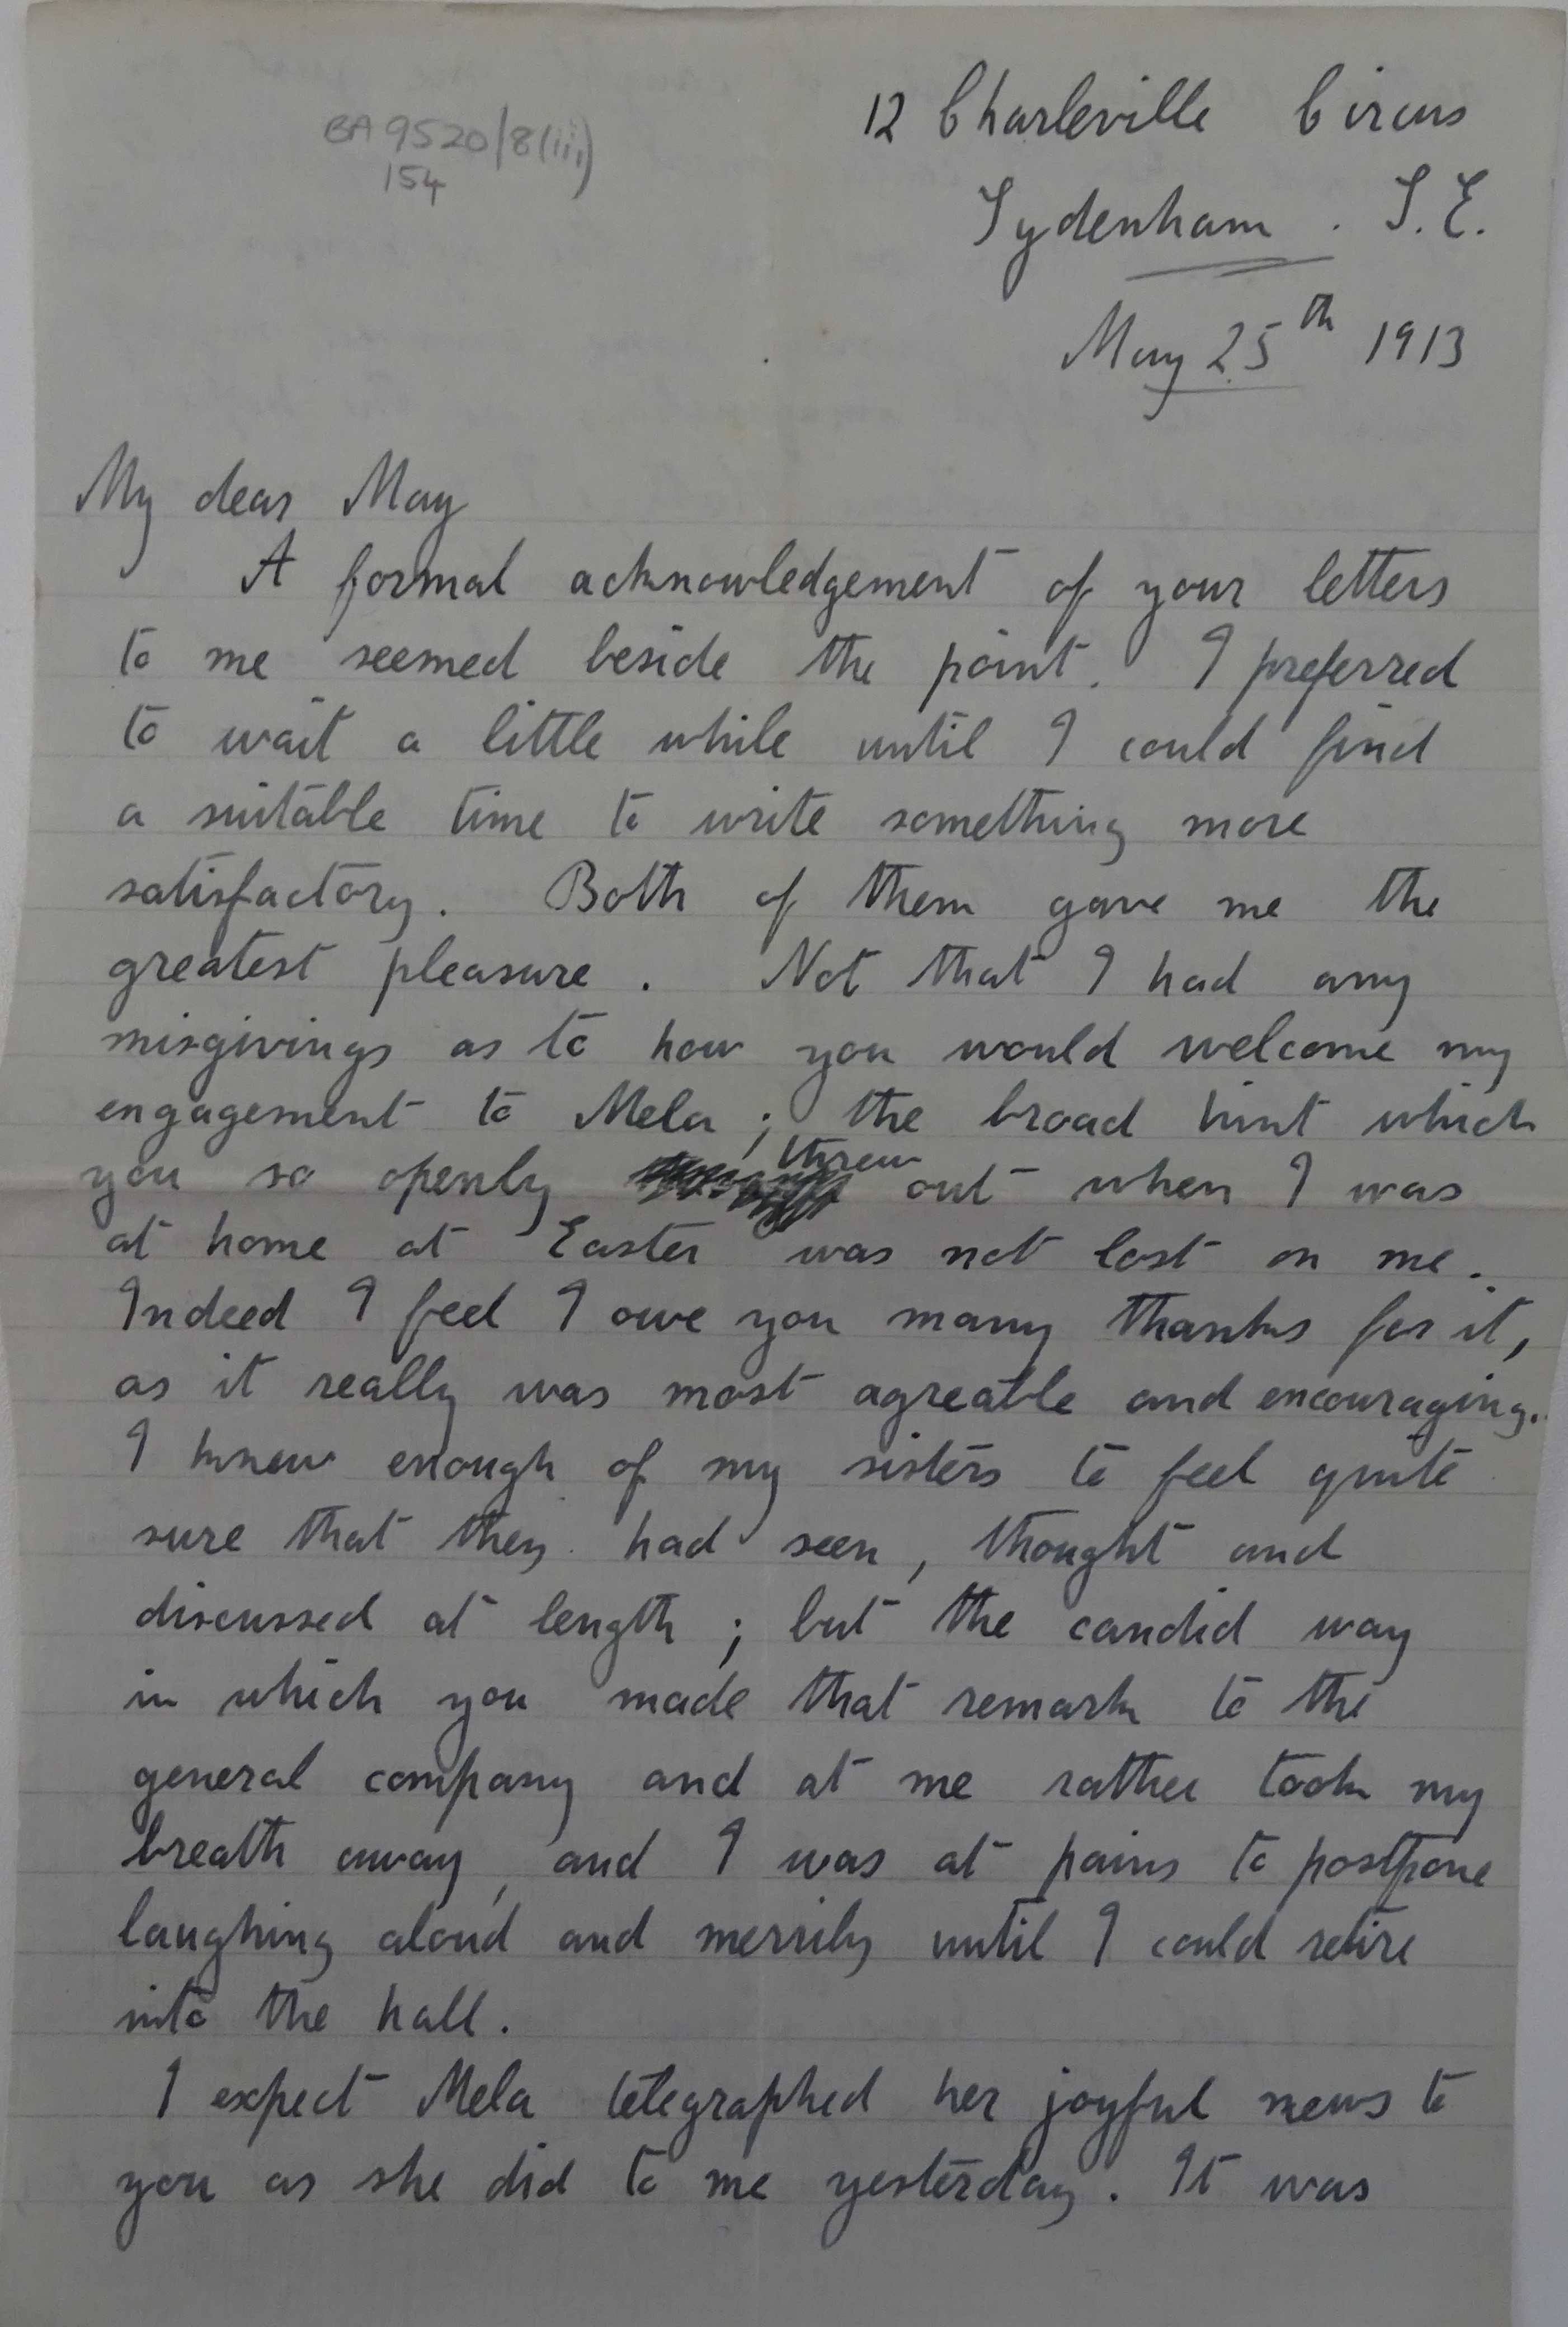 BA 9520/8(iii)
154
12 Charleville Circus
Sydenham . S.E.
May 25th 1913
My dear May
A formal acknowledgement of your letters
to me seemed beside the point. I preferred
to wait a little while until I could find
a suitable time to write something more
satisfactory. Both of them gave me the
greatest pleasure. Not that I had any
misgivings as to how you would welcome my
engagement to Mela; the broad hint which
you so openly threw out when I was
at home at Easter was not lost on me.
Indeed I feel I owe you many thanks for it,
as it really was most agreable and encouraging.
I knew enough of my sisters to feel quite
sure that they had seen, thought and
discussed at length; but the candid way
in which you made that remark to the
general company and at me rather took my
breath away, and I was at pains to postpone
laughing aloud and merrily until I could retire
into the hall.
I expect Mela telegraphed her joyful news to
you as she did to me yesterday. It was